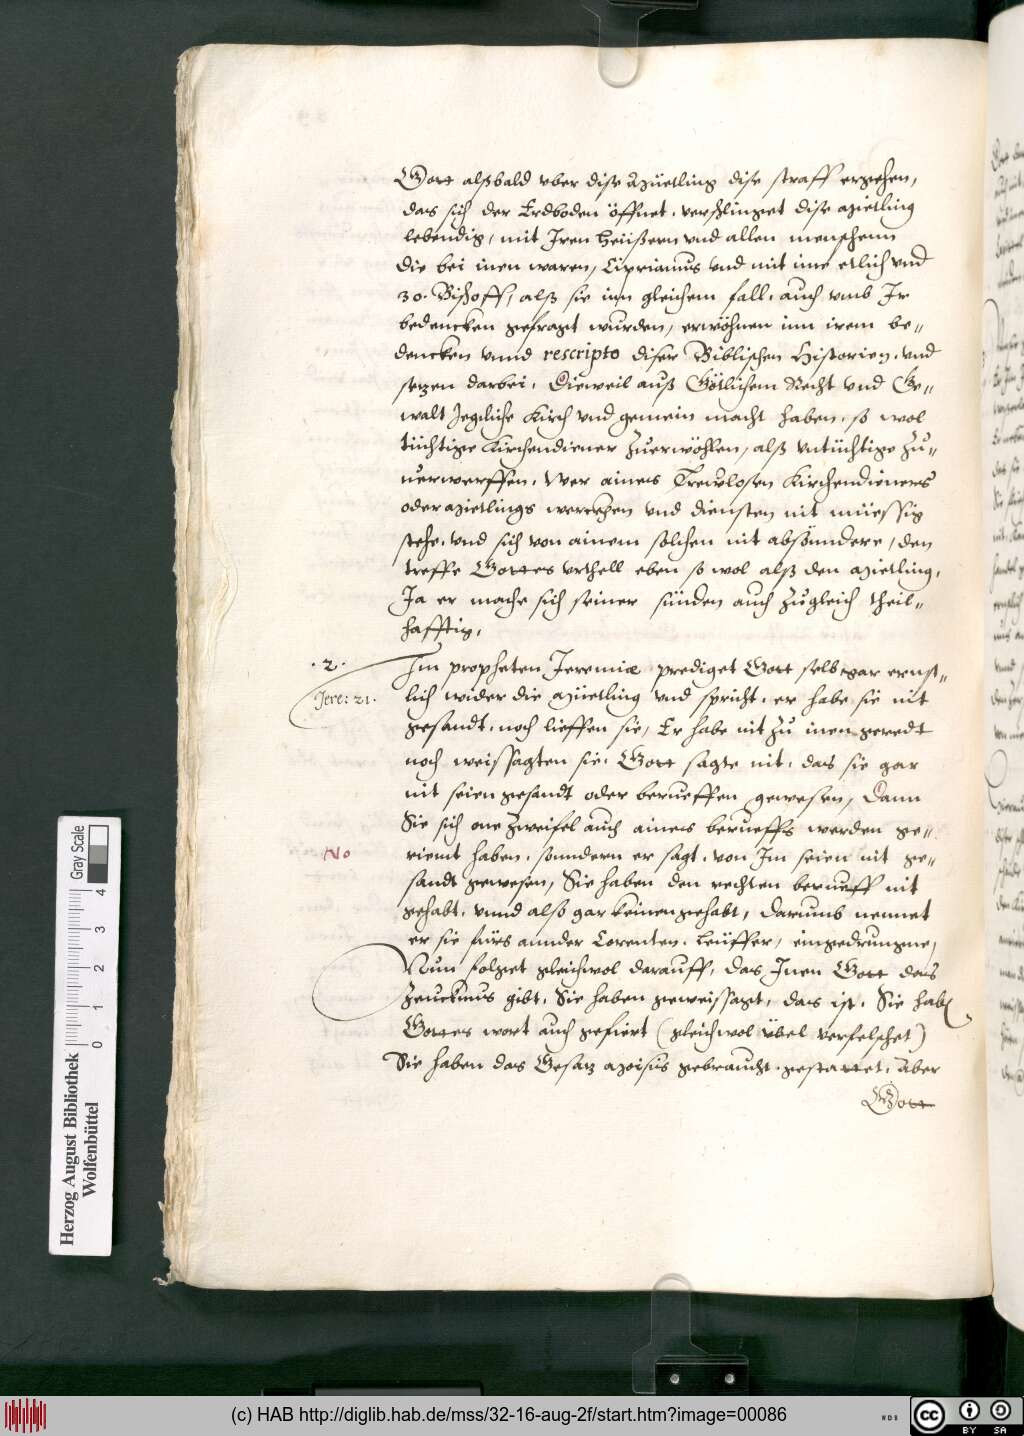 Gott alßbald vber dise Müetling dise straff ergehen,
das sich der Erdboden öffnet, verschlinget dise Mietling
lebendig, mit Iren Heüßern vnd allen menschenn
die bei inen waren, Ciprianus vnd mit ime etlich vnd
30. Bischoff, alß sie inn gleichem fall, auch vmb Ir
bedencken gefragt wurden, erwöhnen inn irem be-
dencken vnnd rescripto diser Biblischen Historien, vnd
setzen darbei, Dieweil auß Götlichem Recht vnd Ge-
walt Jegeliche Kirch vnd gemein macht haben, so wol
tüchtige Kirchendiener Zuerwöhlen, alß vntüchtige Zu-
uerwerffen, Wer aines Trewlosen Kirchendieners
oder Mietlings werckhen vnd diensten nit müessig
stehe, vnd sich von ainem solchen nit absönndere, den
treffe Gottes vrthell eben so wol alß den Mietling,
Ja er mache sich seiner sünden auch Zugleich theil-
hafftig,
.2. Im propheten Jeremiæ prediget Gott selb gar ernst-
Jere: 21. lich wider die Müetling vnd spricht, er habe sie nit
gesandt, noch lieffen sie, Er habe nit Zu inen geredt
noch weissagten sie, Gott sagte nit, das sie gar
nit seien gesandt oder berueffen gewesen, Dann
Sie sich one Zweifel auch aines berueffs werden ge-
No riemt haben, sonndern er sagt, von Im seien nit ge-
sandt gewesen, Sie haben den rechten berueff nit
gehabt, vnnd also gar keinen gehabt, darumb nennet
er sie fürs annder Corenten, Leüffer, eingedrungne,
Nun folget gleichwol darauff, das Inen Gott des
Zeucknus gibt, Sie haben geweissaget, das ist, Sie haben
Gottes wort auch gefiert (gleichwol übel verfelschet)
Sie haben das Gesatz Moisis gebraucht, gestattet, aber
Gott
Herzog August Bibliothek
Wolfenbüttel
0 1 2 3 4
Gray Scale
(c) HAB http://diglib.hab.de/mss/32-16-aug-2f/start.htm?image=00086
cc BY SA